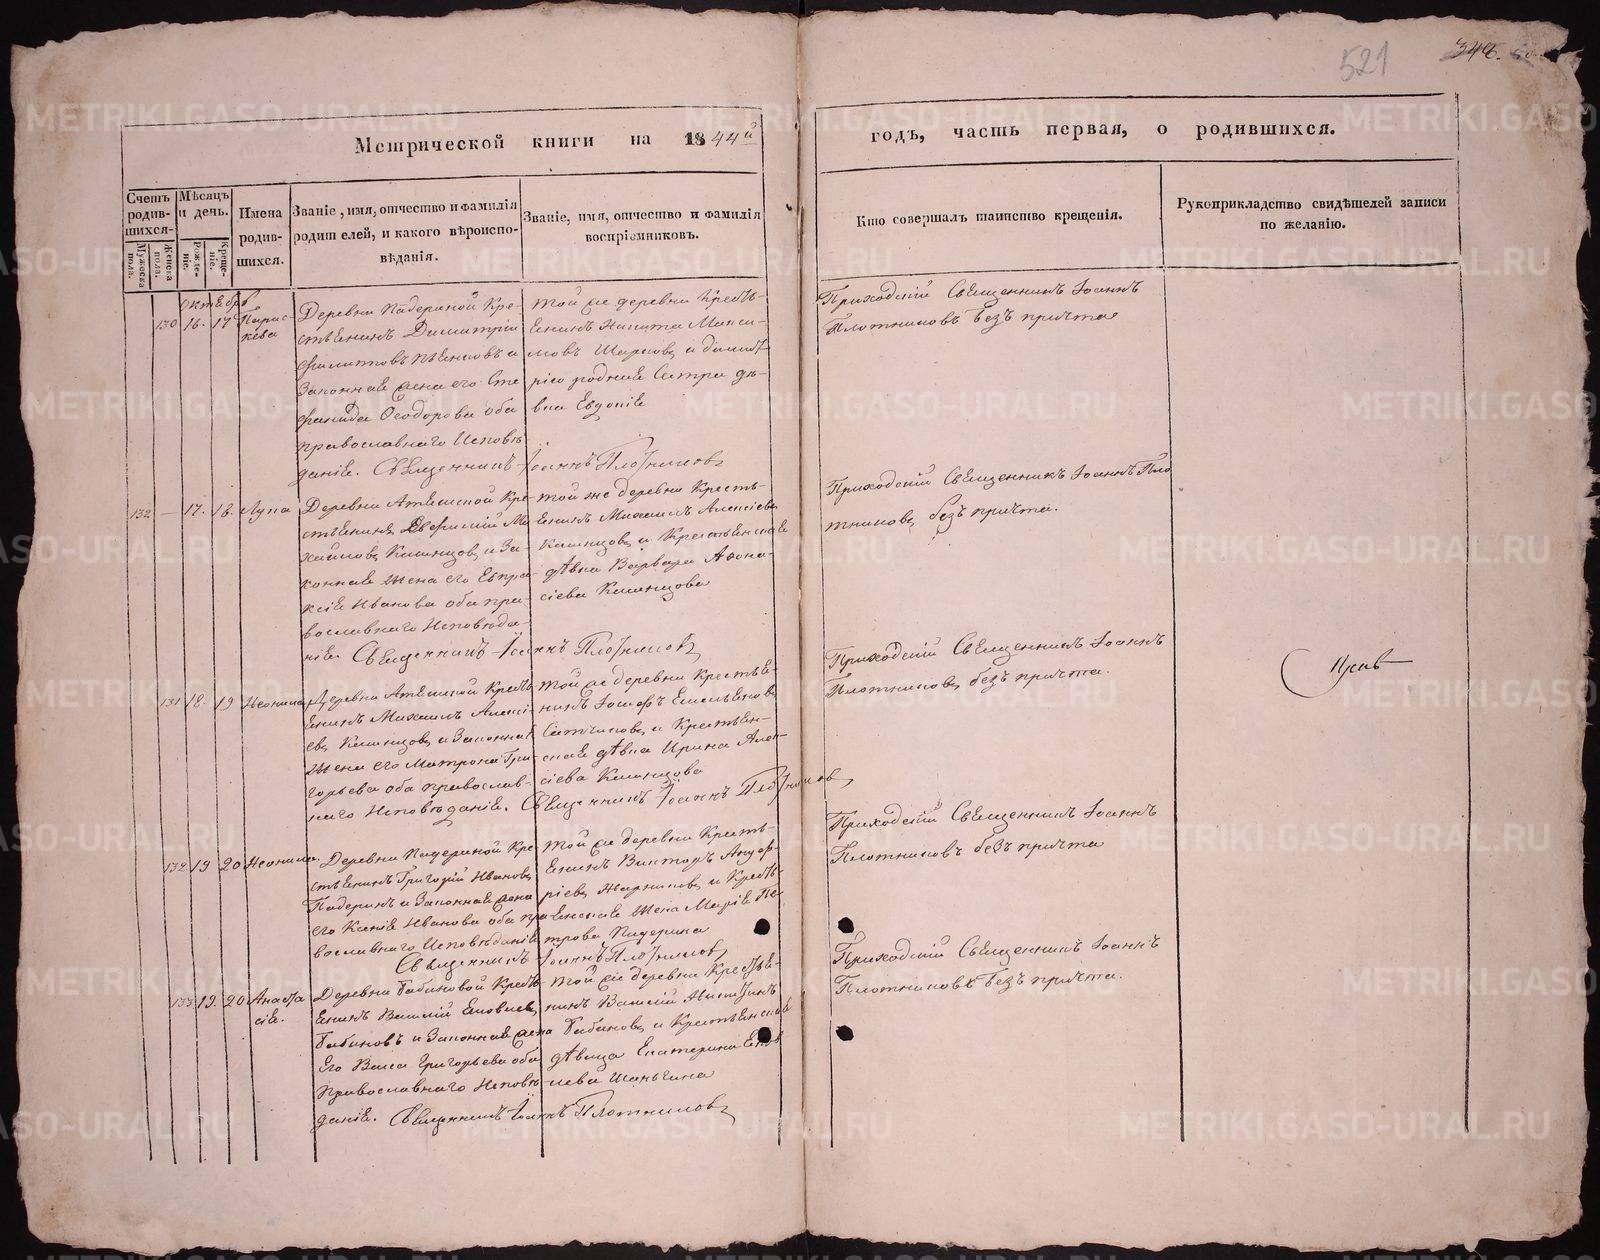 521
346.
Метрической книги на 1844й годъ, часть первая, о родившихся.
Счетъ родившихся.
Мужеска пола.
Женска пола.
Мѣсяцъ и день.
Рожденіе.
Крещеніе.
Имена родившихся.
Званіе, имя, отчество и фамилія родителей, и какого вѣроисповѣданія.
Званіе, имя, отчество и фамилія воспріемниковъ.
Кто совершалъ таинство крещенія.
Рукоприкладство свидѣтелей записи по желанію.
Октебрь
130 16. 17 Парас-
кева
Деревни Падериной Кре-
стьенинъ Димитрій
Филитовъ и
Законнае жена его Сте-
фанида Ѳеодорова оба
православнаго Исповѣ
даніе. Священникъ Іоаннъ Плотниковъ
той же деревни Кресть-
енинъ Никита Макси-
мовъ и
родние сестра дѣ-
вка Евдокіе
Приходскій Священникъ Іоаннъ
Плотниковъ безъ причта
132 — 17. 18. Лупа
Деревни Атешской Кре-
стьенинъ Евфимій Ми-
хайловъ и За-
коннае жена его Евпра-
ксіе Иванова оба пра-
вославнаго Исповѣда-
ніе. Священникъ Іоаннъ Плотниковъ
той же деревни Кресть-
енинъ Михаилъ Алексіевъ
и Крестьенскае
дѣвка Варвара Аѳона-
сіева
Приходскій Священникъ Іоаннъ Пло
тниковъ безъ причта.
131 18. 19 Неонила
Деревни Атешской Кресть-
енинъ Михаилъ Алексі-
евъ и Законнае
жена его Матрона Гри-
горьева оба православ-
наго Исповѣданіе. Священникъ Іоаннъ Плотниковъ
той же деревни Крестье-
нинъ Іосифъ Емельеновъ
и Крестьен-
скае дѣвка Ирина Алек-
сіева
Приходскій Священникъ Іоаннъ
Плотниковъ безъ причта.
132 19 20 Неонила.
Деревни Падериной Кре-
стьенинъ Григорій Ивановъ
Падеринъ и Законнае жена
его Ксеніе Иванова оба пра
вославнаго Исповѣданіе
Священникъ Іоаннъ Плотниковъ
той же деревни Кресть-
енинъ Викторъ Андре-
іевъ и Кресть-
енскае жена Маріе Пе-
трова Падерина
Приходскій Священникъ Іоаннъ
Плотниковъ безъ причта
133 19. 20 Анаста
сіе.
Деревни Бабиновой Кресть
енинъ Василій
Бабиновъ и Законнае жена
Его Васса Григорьева оба
Православнаго Исповѣ-
даніе. Священникъ Іоаннъ Плотниковъ
той же деревни Крестье-
нинъ Василій Никитинъ
Бабиновъ и Крестьенскае
дѣвица Екатерина
Шаньгина
Приходскій Священникъ Іоаннъ
Плотниковъ безъ причта.
METRIKI.GASO-URAL.RU